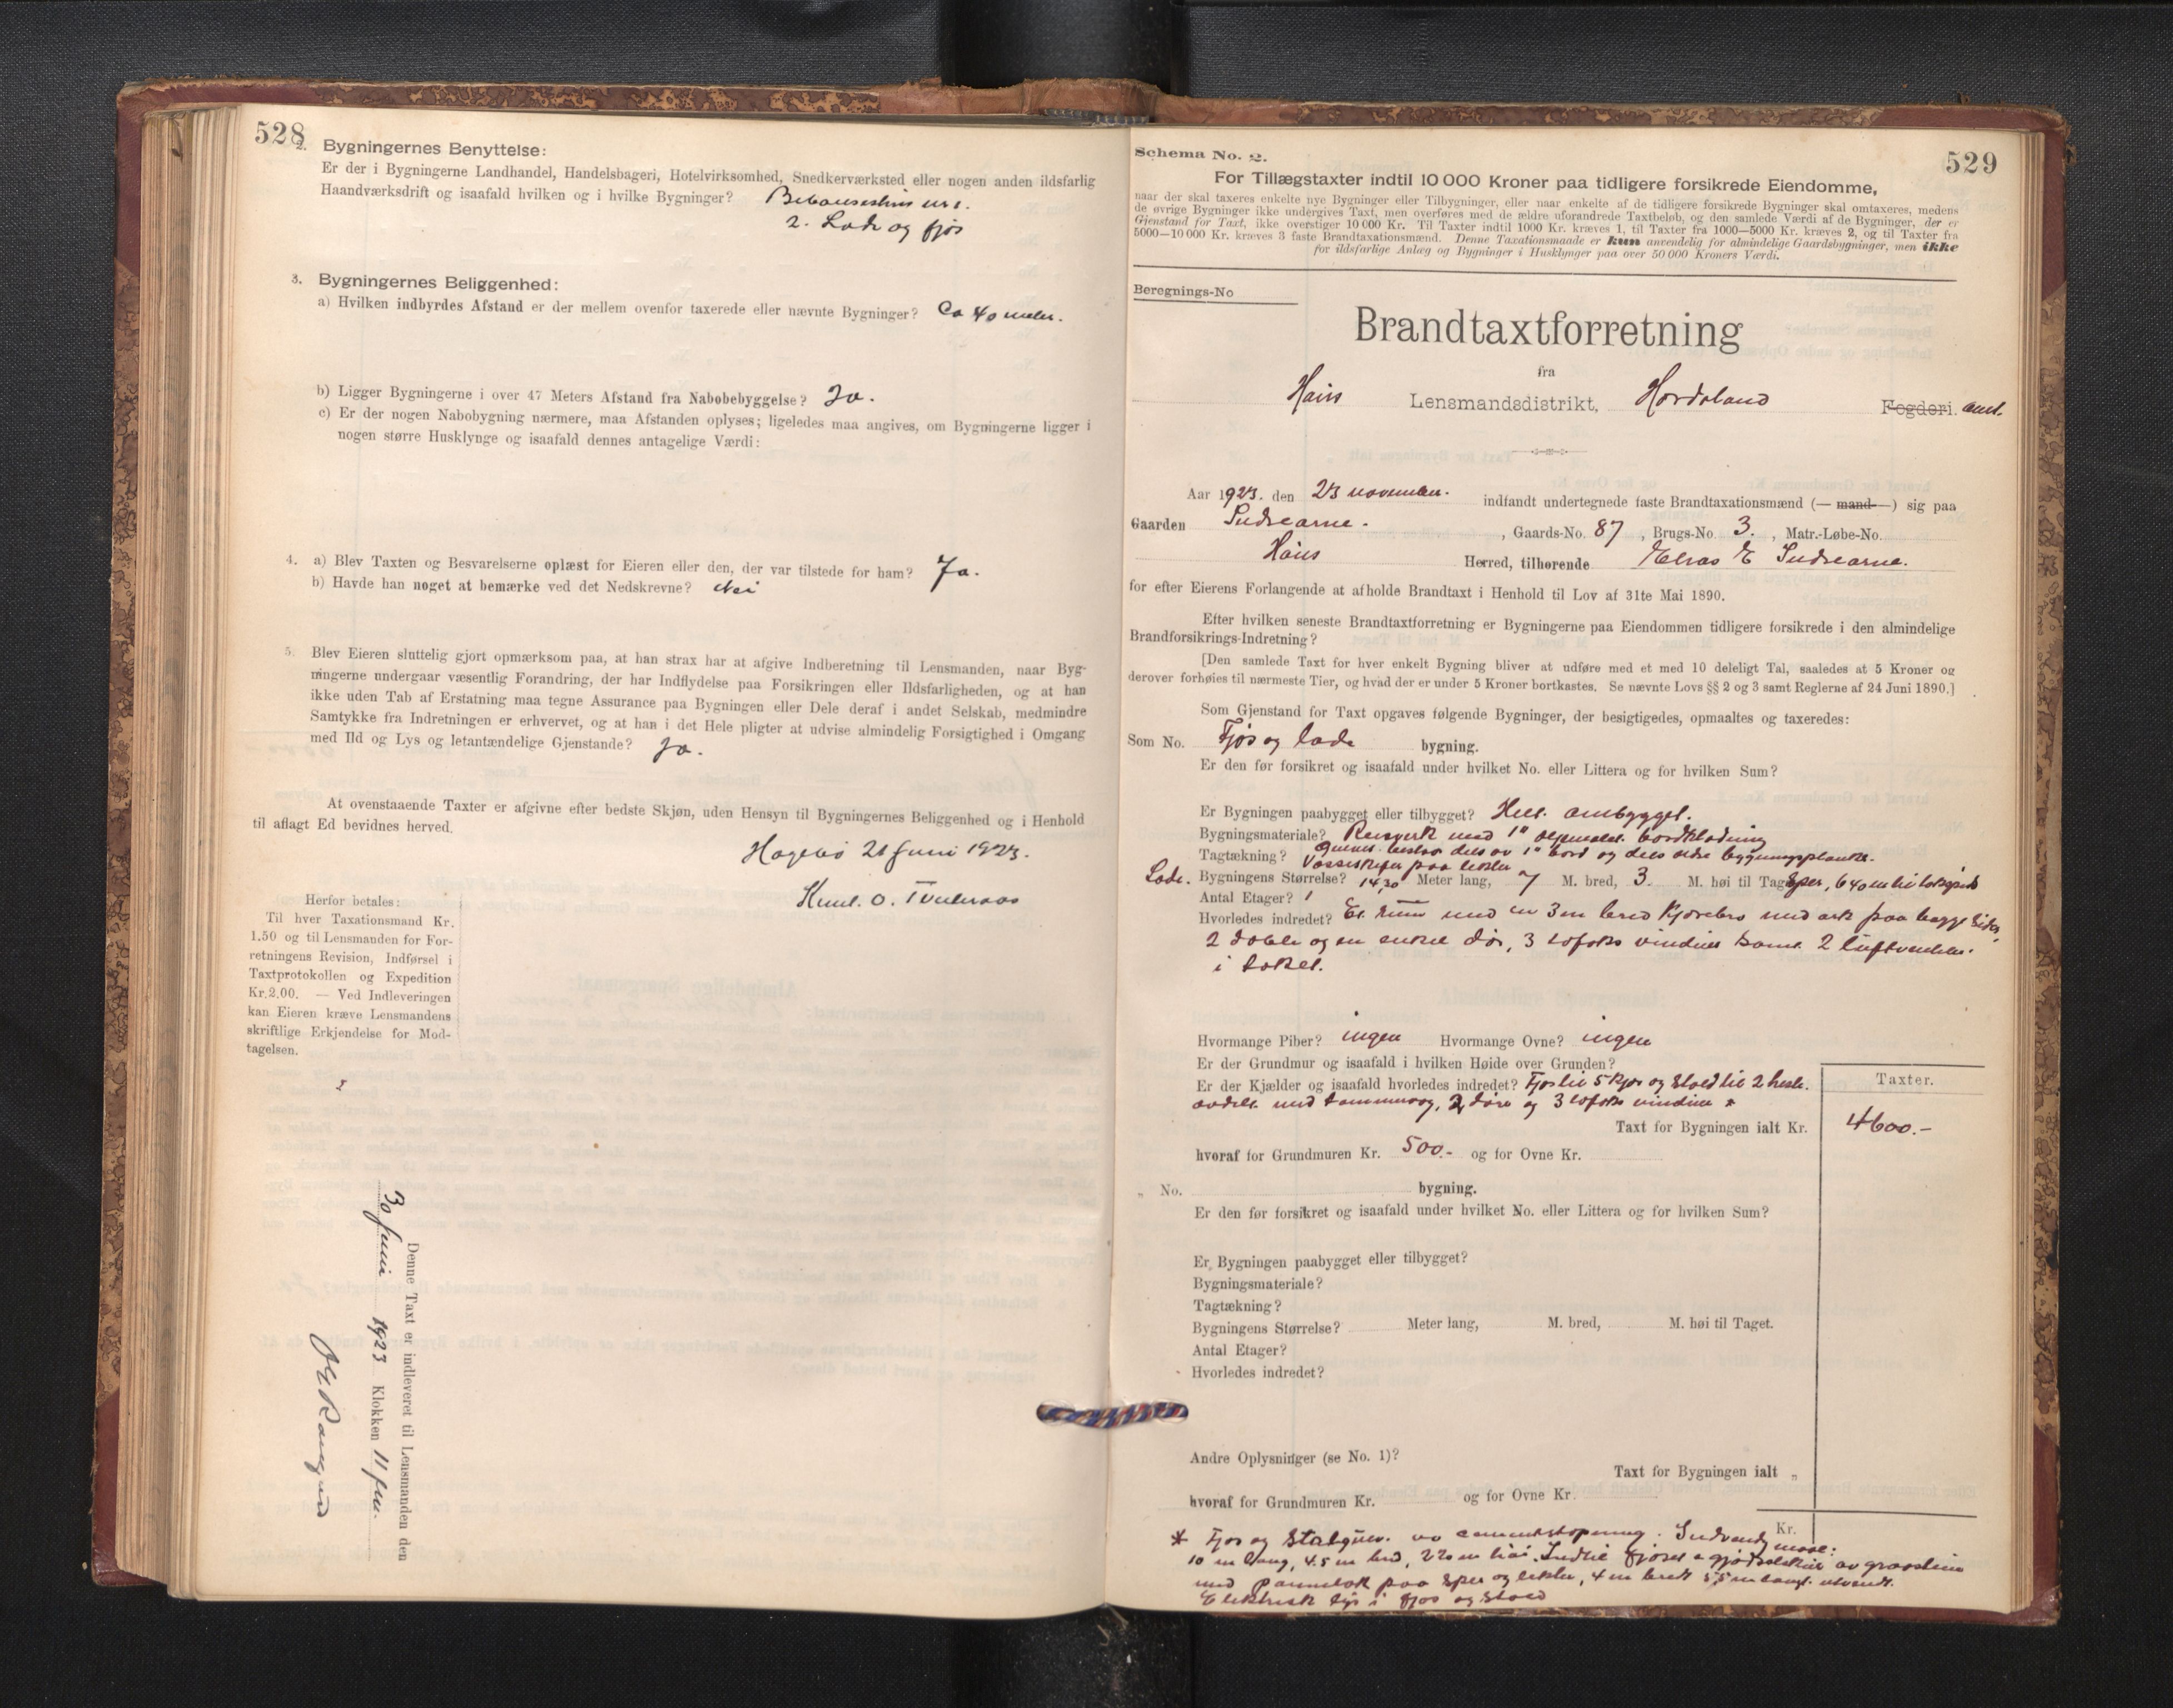 528
2. Bygningernes Benyttelse:
Er der i Bygningerne Landhandel, Handelsbageri, Hotelvirksomhed, Snedkerværksted eller nogen anden ildsfarlig
Haandværksdrift og isaafald hvilken og i hvilke Bygninger? 1.
2. Lade og fjøs
3. Bygningernes Beliggenhed:
a) Hvilken indbyrdes Afstand er der mellem ovenfor taxerede eller nævnte Bygninger? Ca 40 meter.
b) Ligger Bygningerne i over 47 Meters Afstand fra Nabobebyggelse? Ja.
c) Er der nogen Nabobygning nærmere, maa Afstanden oplyses; ligeledes maa angives, om Bygningerne ligger i
nogen større Husklynge og isaafald dennes antagelige Værdi:
4. a) Blev Taxten og Besvarelserne oplæst for Eieren eller den, der var tilstede for ham? Ja.
b) Havde han noget at bemærke ved det Nedskrevne? Nei
5. Blev Eieren sluttelig gjort opmærksom paa, at han strax har at afgive Indberetning til Lensmanden, naar Byg-
ningerne undergaar væsentlig Forandring, der har Indflydelse paa Forsikringen eller Ildsfarligheden, og at han
ikke uden Tab af Erstatning maa tegne Assurance paa Bygningen eller Dele deraf i andet Selskab, medmindre
Samtykke fra Indretningen er erhvervet, og at han i det Hele pligter at udvise almindelig Forsigtighed i Omgang
med Ild og Lys og letantændelige Gjenstande? Ja.
At ovenstaaende Taxter er afgivne efter bedste Skjøn, uden Hensyn til Bygningernes Beliggenhed og i Henhold
til aflagt Ed bevidnes herved.
21 Juni 1923.
Knut. O.
Herfor betales:
Til hver Taxationsmand Kr.
1.50 og til Lensmanden for For-
retningens Revision, Indførsel i
Taxtprotokollen og Expedition
Kr.2.00. — Ved Indleveringen
kan Eieren kræve Lensmandens
skriftlige Erkjendelse for Mod-
tagelsen.
Denne Taxt er indleveret til Lensmanden den
30 Juni 1923 Klokken 11 fm.
529
Schema No. 2.
For Tillægstaxter indtil 10 000 Kroner paa tidligere forsikrede Eiendomme,
naar der skal taxeres enkelte nye Bygninger eller Tilbygninger, eller naar enkelte af de tidligere forsikrede Bygninger skal omtaxeres, medens
de øvrige Bygninger ikke undergives Taxt, men overføres med de ældre uforandrede Taxtbeløb, og den samlede Værdi af de Bygninger, der er
Gjenstand for Taxt, ikke overstiger 10 000 Kr. Til Taxter indtil 1000 Kr. kræves 1, til Taxter fra 1000—5000 Kr. kræves 2, og til Taxter fra
5000—10 000 Kr. kræves 3 faste Brandtaxationsmænd. Denne Taxationsmaade er kun anvendelig for almindelige Gaardsbygninger, men ikke
for ildsfarlige Anlæg og Bygninger i Husklynger paa over 50 000 Kroners Værdi.
Beregnings-No
Brandtaxtforretning
fra
Haus Lensmandsdistrikt, Hordaland Fogderi. amt.
Aar 1923. den 23 november. indfandt undertegnede faste Brandtaxationsmænd (— mand —) sig paa
Gaarden Indrearne. , Gaards-No. 87, Brugs-No. 3. , Matr.-Løbe-No.
Haus Herred, tilhørende E Indrearne.
for efter Eierens Forlangende at afholde Brandtaxt i Henhold til Lov af 31te Mai 1890.
Efter hvilken seneste Brandtaxtforretning er Bygningerne paa Eiendommen tidligere forsikrede i den almindelige
Brandforsikrings-Indretning?
[Den samlede Taxt for hver enkelt Bygning bliver at udføre med et med 10 deleligt Tal, saaledes at 5 Kroner og
derover forhøies til nærmeste Tier, og hvad der er under 5 Kroner bortkastes. Se nævnte Lovs §§ 2 og 3 samt Reglerne af 24 Juni 1890.]
Som Gjenstand for Taxt opgaves følgende Bygninger, der besigtigedes, opmaaltes og taxeredes:
Som No. Fjøs og lade bygning.
Er den før forsikret og isaafald under hvilket No. eller Littera og for hvilken Sum?
Er Bygningen paabygget eller tilbygget? Helt ombygget.
Bygningsmateriale? Reisverk med 1" oljemalt bordklædning
gulvet bestaar dels av 1" bord og dels av bygningsplanke.
Tagtækning? Vosseskifer paa lekter
Lade. Bygningens Størrelse? 14,30 Meter lang, 7 M. bred, 3. M. høi til Taget
Antal Etager? 1
Hvorledes indredet? Et rum med en 3 m bred kjørebro med ark paa begge sider,
2 doble og en enkel dør, 3 vinduer samt 2
i taket.
Hvormange Piber? ingen Hvormange Ovne? ingen
Er der Grundmur og isaafald i hvilken Høide over Grunden?
Er der Kjælder og isaafald hvorledes indredet? Fjøs til 5 kjør og stald til 2 heste.
avdelt med tømmervæg, 2 døre og 3 vinduer *
Taxter.
Taxt for Bygningen ialt Kr. 4600.-
hvoraf for Grundmuren Kr. 500.- og for Ovne Kr.
„ No. bygning.
Er den før forsikret og isaafald under hvilket No. eller Littera og for hvilken Sum?
Er Bygningen paabygget eller tilbygget?
Bygningsmateriale?
Tagtækning?
Bygningens Størrelse? Meter lang, M. bred, M. høi til Taget.
Antal Etager?
Hvorledes indredet?
Andre Oplysninger (se No. 1)?
Taxt for Bygningen ialt „
hvoraf for Grundmuren Kr. og for Ovne Kr.
Kr.
* Fjøs og stald av cementstøpning. Indvendig maal:
10 m lang, 4.5 m bred, 2 20 m høi. Indtil fjøset gjødselskur av graasten
med pannetak paa sper og lekter, 4 m bredt 5,5 m langt utvendt.
Elektrisk lys i fjøs og stald